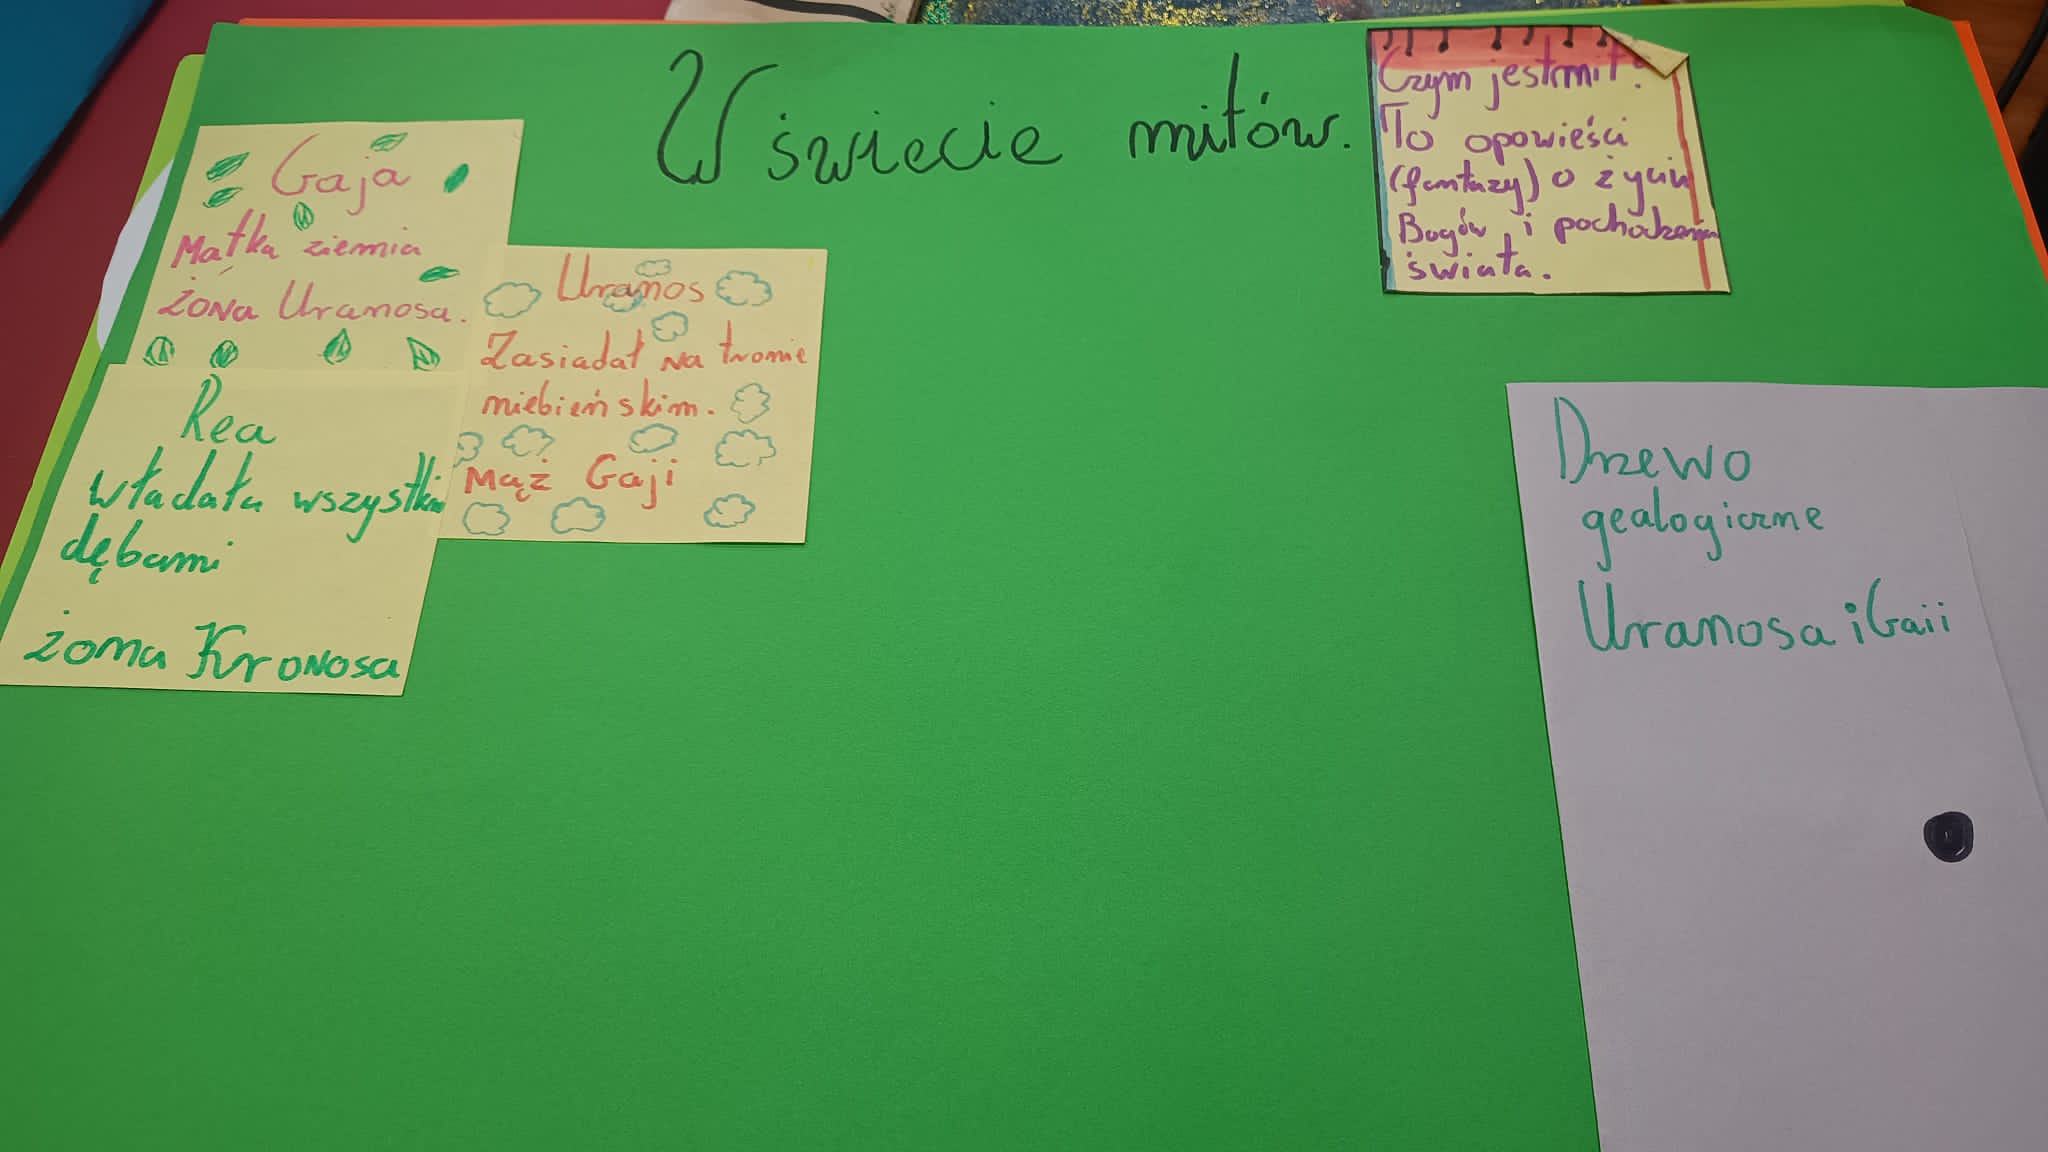 W świecie mitów.
Czym jest mit?
To opowieści
(fantazy) o życiu
Bogów i pochodzeniu
świata.
Gaja
Matka ziemia
żona Uranosa.
Uranos
Zasiadał na tronie
niebieńskim.
Mąż Gaji
Rea
władała wszystkim
dębami
żona Kronosa
Drzewo
gealogiczne
Uranosa i Gaii